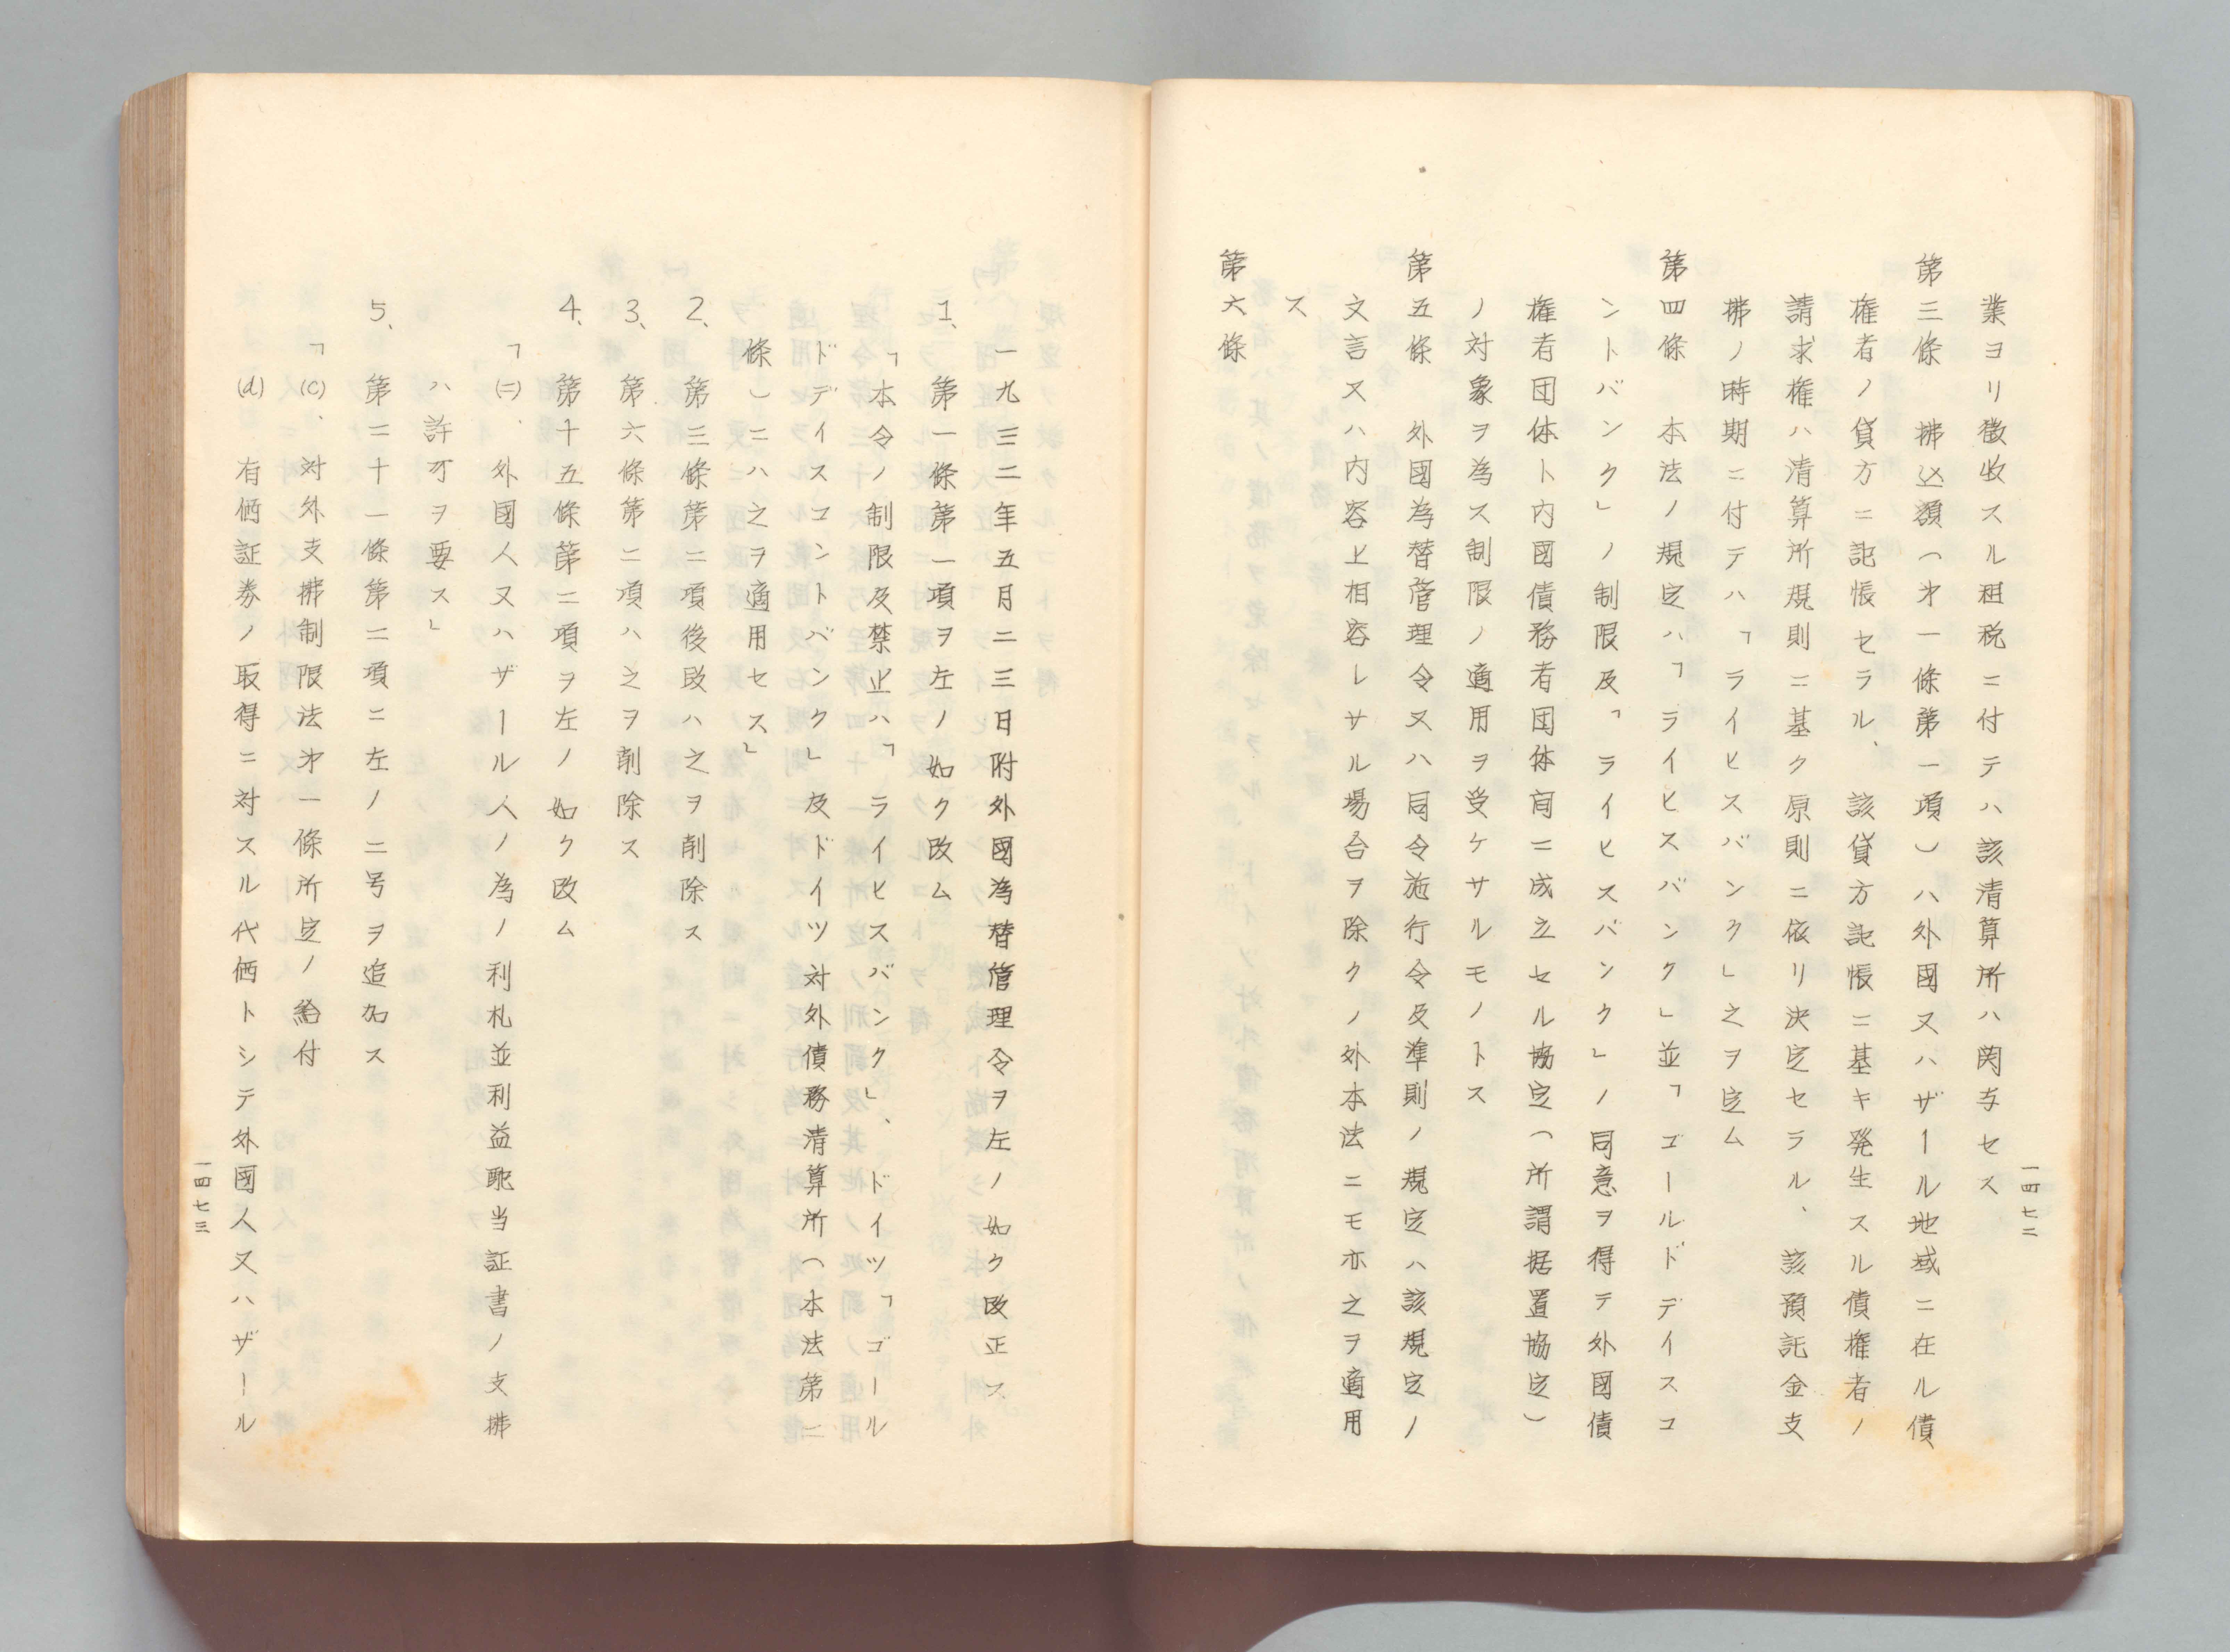 業ヨリ徴收スル租税ニ付テハ該清算所ハ関与セス
第三條　拂込額（才一條第一項）ハ外國又ハザール地域ニ在ル債
権者ノ貸方ニ記帳セラル、該貸方記帳ニ基キ発生スル債権者ノ
請求権ハ清算所規則ニ基ク原則ニ依リ決定セラル、該預託金支
拂ノ時期ニ付テハ「ライヒスバンク」之ヲ定ム
第四條　本法ノ規定ハ「ライヒスバンク」並「ゴールドデイスコ
ントバンク」ノ制限及「ライヒスバンク」ノ同意ヲ得テ外國債
権者団体ト内國債務者団体間ニ成立セル協定（所謂据置協定）
ノ対象ヲ為ス制限ノ適用ヲ受ケサルモノトス
第五條　外國為替管理令又ハ同令施行令及準則ノ規定ハ該規定ノ
文言又ハ内容上相容レサル場合ヲ除クノ外本法ニモ亦之ヲ適用
ス
第六條
一四七二
一九三二年五月二三日附外國為替管理令ヲ左ノ如ク改正ス
1、第一條第一項ヲ左ノ如ク改ム
「本令ノ制限及禁止ハ「ライヒスバンク」、ドイツ「ゴール
ドデイスコントバンク」及ドイツ対外債務清算所（本法第二
條）ニハ之ヲ適用セス」
2、第三條第二項後段ハ之ヲ削除ス
3、第六條第二項ハ之ヲ削除ス
4、第十五條第二項ヲ左ノ如ク改ム
「㈡、外國人又ハザール人ノ為ノ利札並利益配当証書ノ支拂
ハ許可ヲ要ス」
5、第二十一條第二項ニ左ノ二号ヲ追加ス
「(c)、対外支拂制限法才一條所定ノ給付
(d)　有価証券ノ取得ニ対スル代価トシテ外國人又ハザール
一四七三